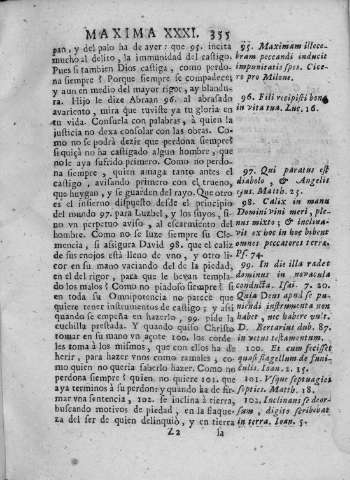 MAXIMA XXXI. 355
pan, y del palo ha de ayer: que 95. incita
mucho al delito, la immunidad del castigo.
Pues si tambien Dios castiga, como perdo-
na siempre? Porque siempre se compadece;
y aun en medio del mayor rigor, ay blandu-
ra. Hijo le dize Abraan 96. al abrasado
avariento, mira que tuviste ya tu gloria en
tu vida. Consuela con palabras, à quien la
justicia no dexa consolar con las obras. Co-
mo no se podrà dezir que perdona siempre?
si quiçà no ha castigado algun hombre, que
no le aya sufrido primero. Como no perdo-
na siempre, quien amaga tanto antes el
castigo, avisando primero con el trueno,
que huygan, y se guarden del rayo. Que otro
es el infierno dispuesto desde el principio
del mundo 97. para Luzbel, y los suyos, si-
no vn perpetuo aviso, al escarmiento del
hombre. Como no se luze siempre su Cle-
mencia, si assigura David 98. que el caliz
de sus enojos està lleno de vno, y otro li-
cor en su mano vaciando del de la piedad,
en el del rigor, para que le bevan templa-
do los malos? Como no piadoso siempre? si
en toda su Omnipotencia no parece que
quiere tener instrumentos de castigo; y assi
quando se empeña en hazerlo, 99. pide la
cuchilla prestada. Y quando quiso Christo
tomar en su mano vn açote 100. los corde-
les toma à los mismos, que con ellos ha de
herir, para hazer vnos como ramales, co-
mo quien no queria saberlo hazer. Como no
perdona siempre? quien no quiere 101. que
aya terminos à su perdon; y quando ha de fir-
mar vna sentencia, 102. se inclina à tierra,
buscando motivos de piedad, en la flaque-
za del ser de quien delinquiò, y en tierra
Z2 la
95. Maximam illece-
bram peccandi inducit
impunitatis spes. Cice-
ro pro Milone.
96. Fili recipisti bona
in vita tua. Luc. 16.
97. Qui paratus est
diabolo, & Angelis
ejus. Matth. 25.
98. Calix in manu
Domini vini meri, ple-
nus mixto; & inclina-
vit ex hoc in hoc bibent
omnes peccatores terra.
Ps. 74.
99. In die illa radet
dominus in novacula
conducta. Isai. 7. 20.
Quia Deus apud se pu-
niendi instrumenta non
habet, nec habere vult.
D. Bertarius dub. 87.
in vetus testamentum.
100. Et cum fecisset
quasi flagellum de funi-
culis. Ioan. 2. 15.
101. Vsque septuagies
septies. Matth. 18.
102. Inclinans se deor-
sum, digito scribebat
in terra. Ioan.